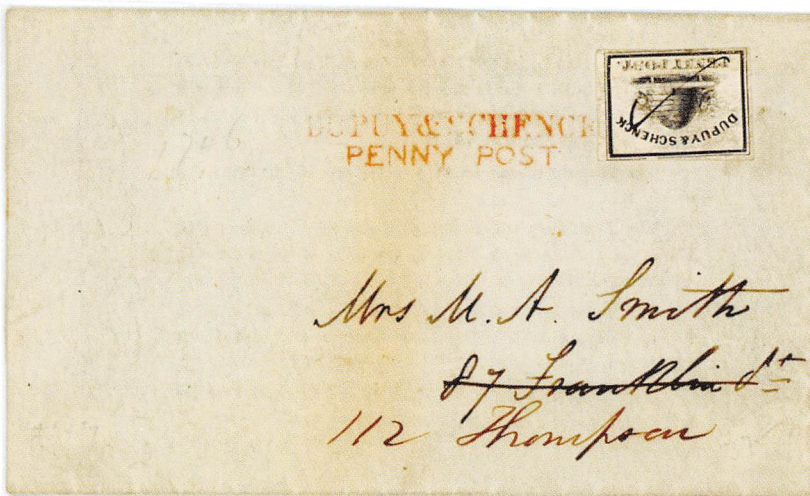 DUPUY & SCHENCK
PENNY POST
PENNY POST.
DUPUY & SCHENCK
Mrs M. A. Smith
87 Franklin St
112 Thompson